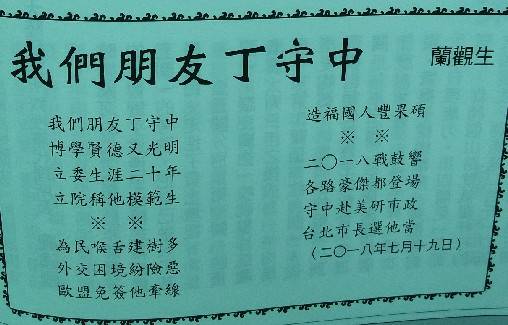 我們朋友丁守中
蘭觀生
我們朋友丁守中
博學賢德又光明
立委生涯二十年
立院稱他模範生
※ ※
為民喉舌建樹多
外交困境紛險惡
歐盟免簽他牽線
造福國人豐果碩
※ ※
二〇一八戰鼓響
各路豪傑都登場
守中赴美研市政
台北市長選他當
(二〇一八年七月十九日)